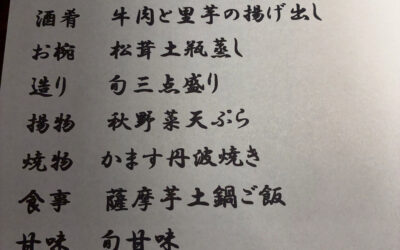 酒肴 牛肉と里芋の揚げ出し
お椀 松茸土瓶蒸し
造り 旬三点盛り
揚物 秋野菜天ぷら
焼物 かます丹波焼き
食事 薩摩芋土鍋ご飯
甘味 旬甘味